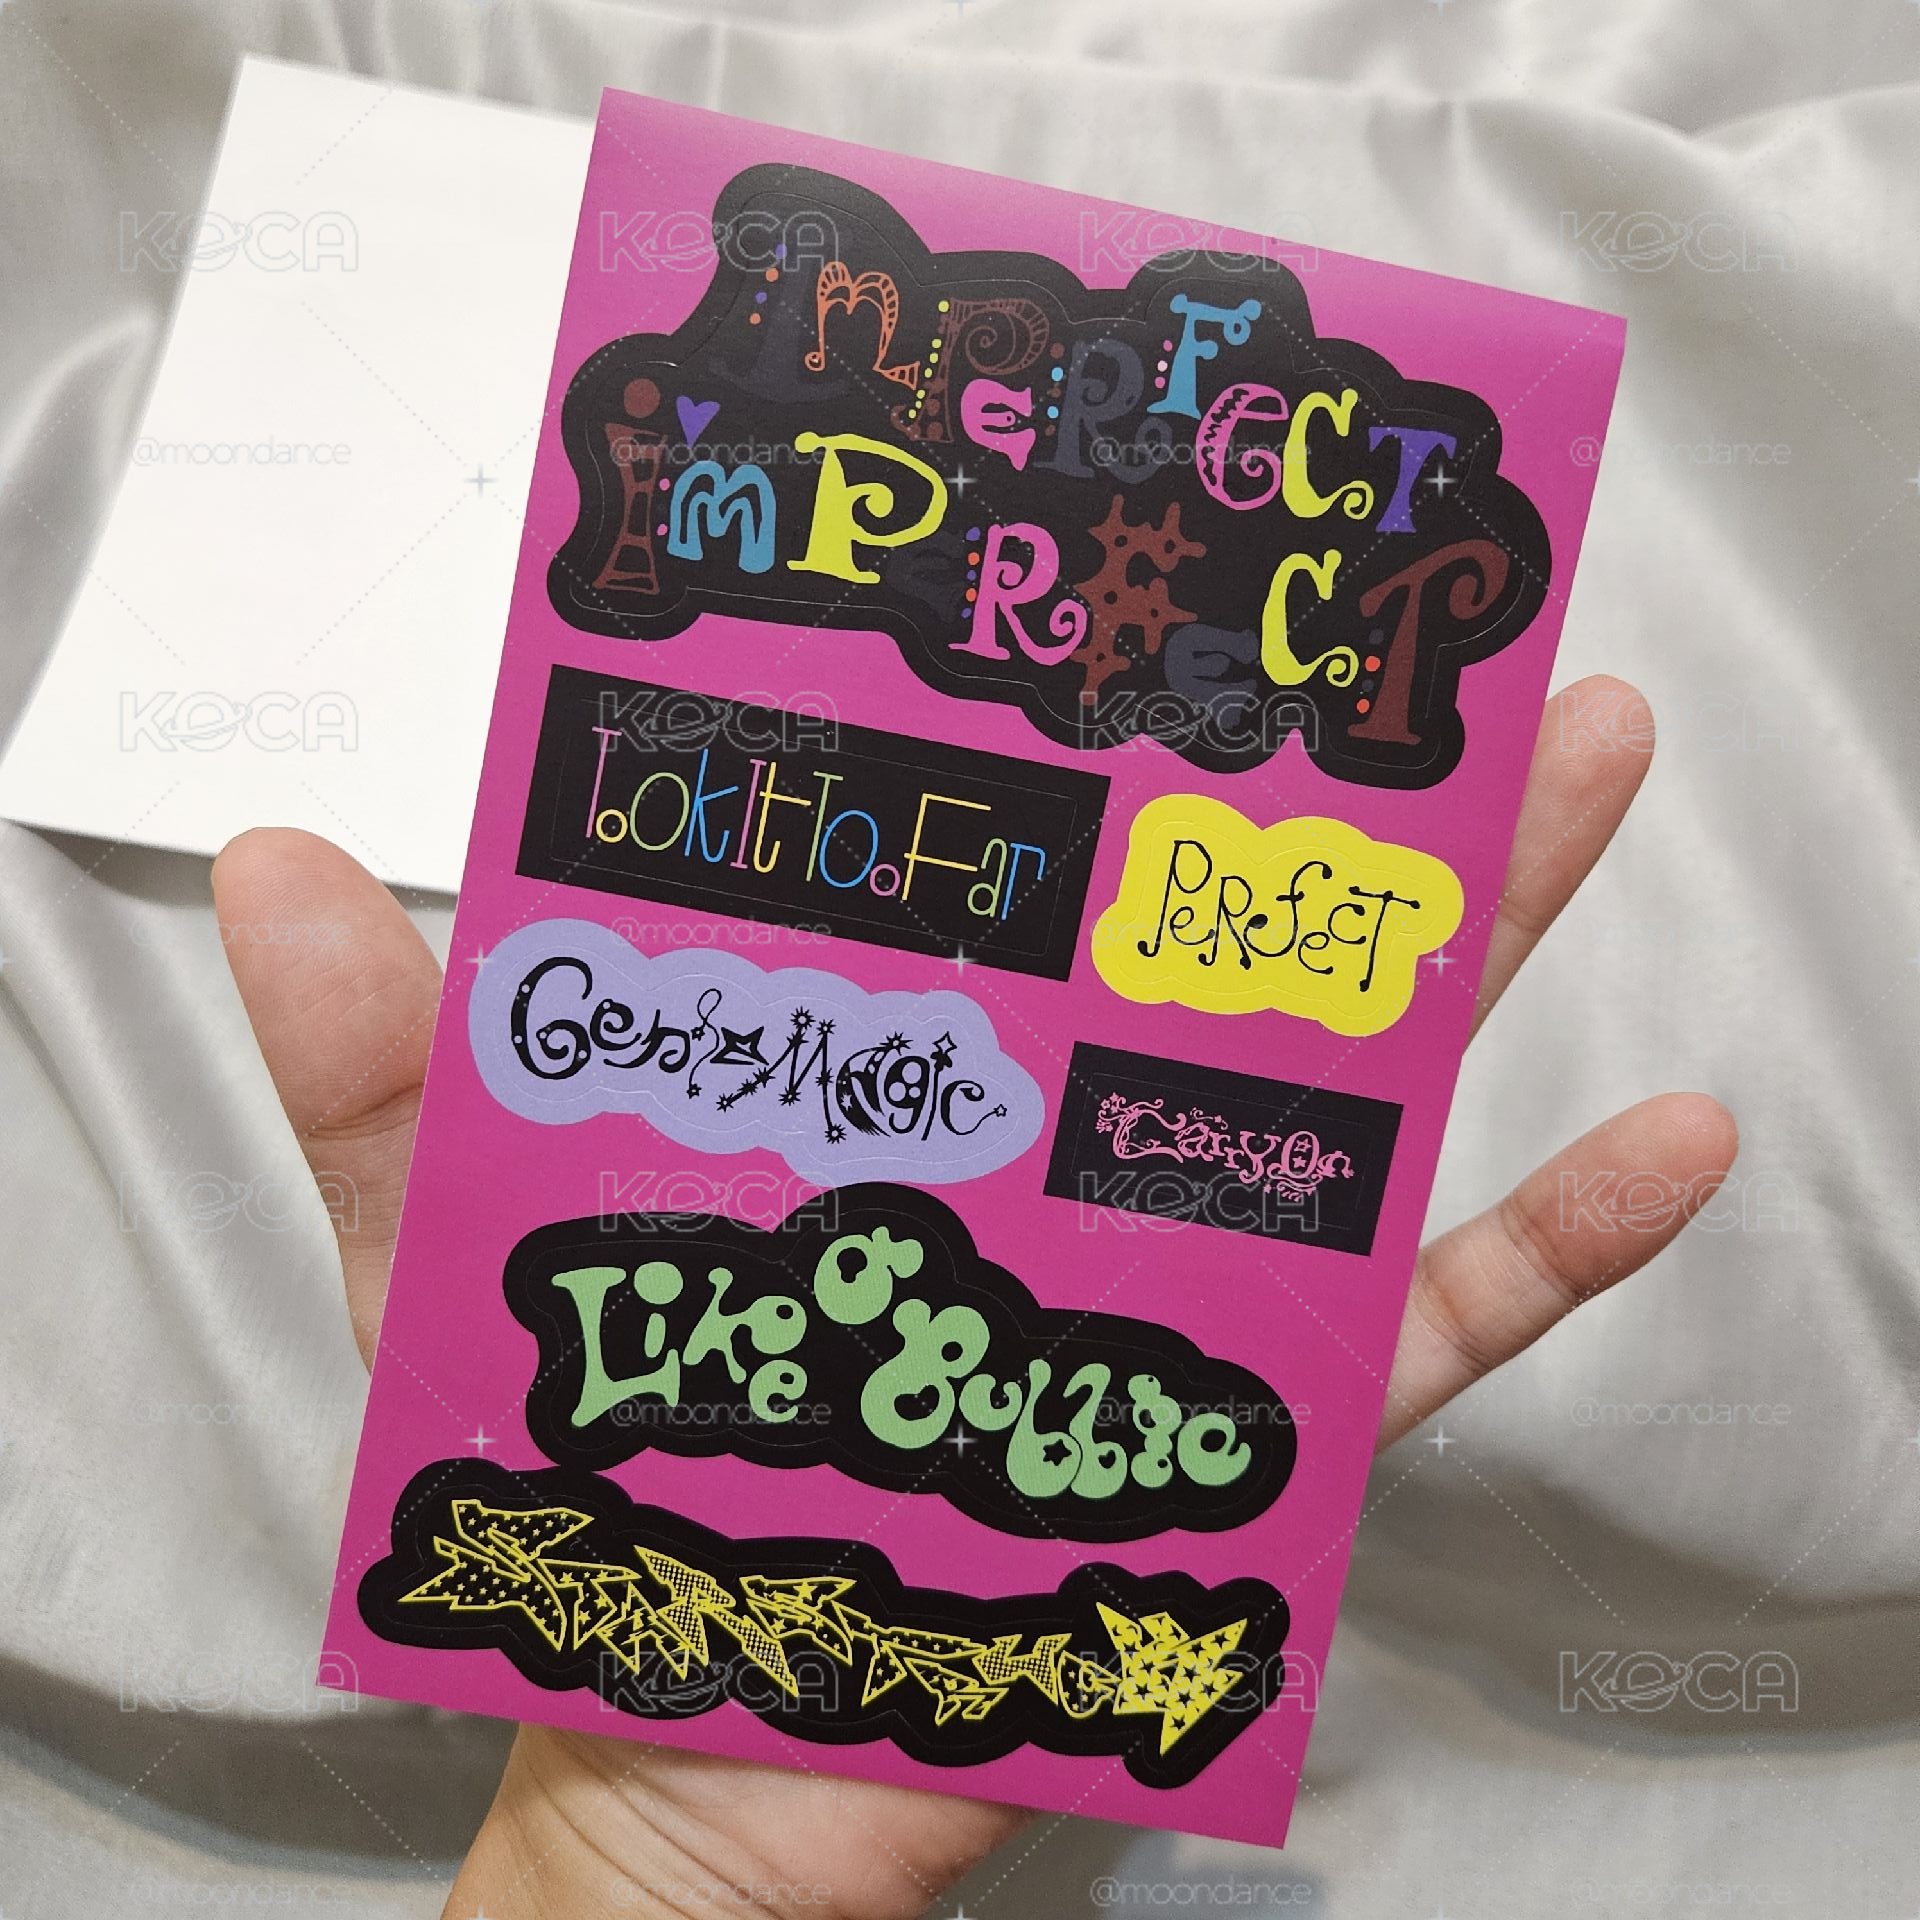 ImPeRFeCT
imPeRFeCT
TookItTooFar
PeRfecT
Geni✦Magic
CarryOn
Like a Bubble
STARSTRUCK
KOCA
@moondance